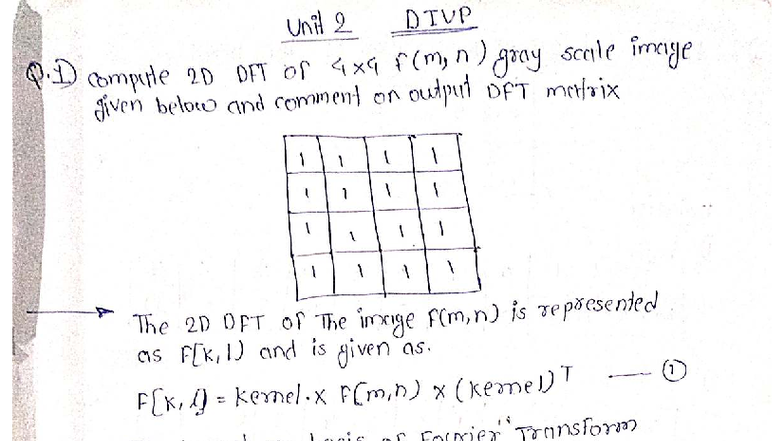 Unit 2 DIVP
Q.1) compute 2D DFT of 4x4 f(m,n) gray scale image
given below and comment on output DFT matrix
1 1 1 1
1 1 1 1
1 1 1 1
1 1 1 1
The 2D DFT of The image f(m,n) is represented
as F[k,l) and is given as.
F[k,l] = kernel.x f(m,n) x (kernel)T — ①
of Fourier" Transform